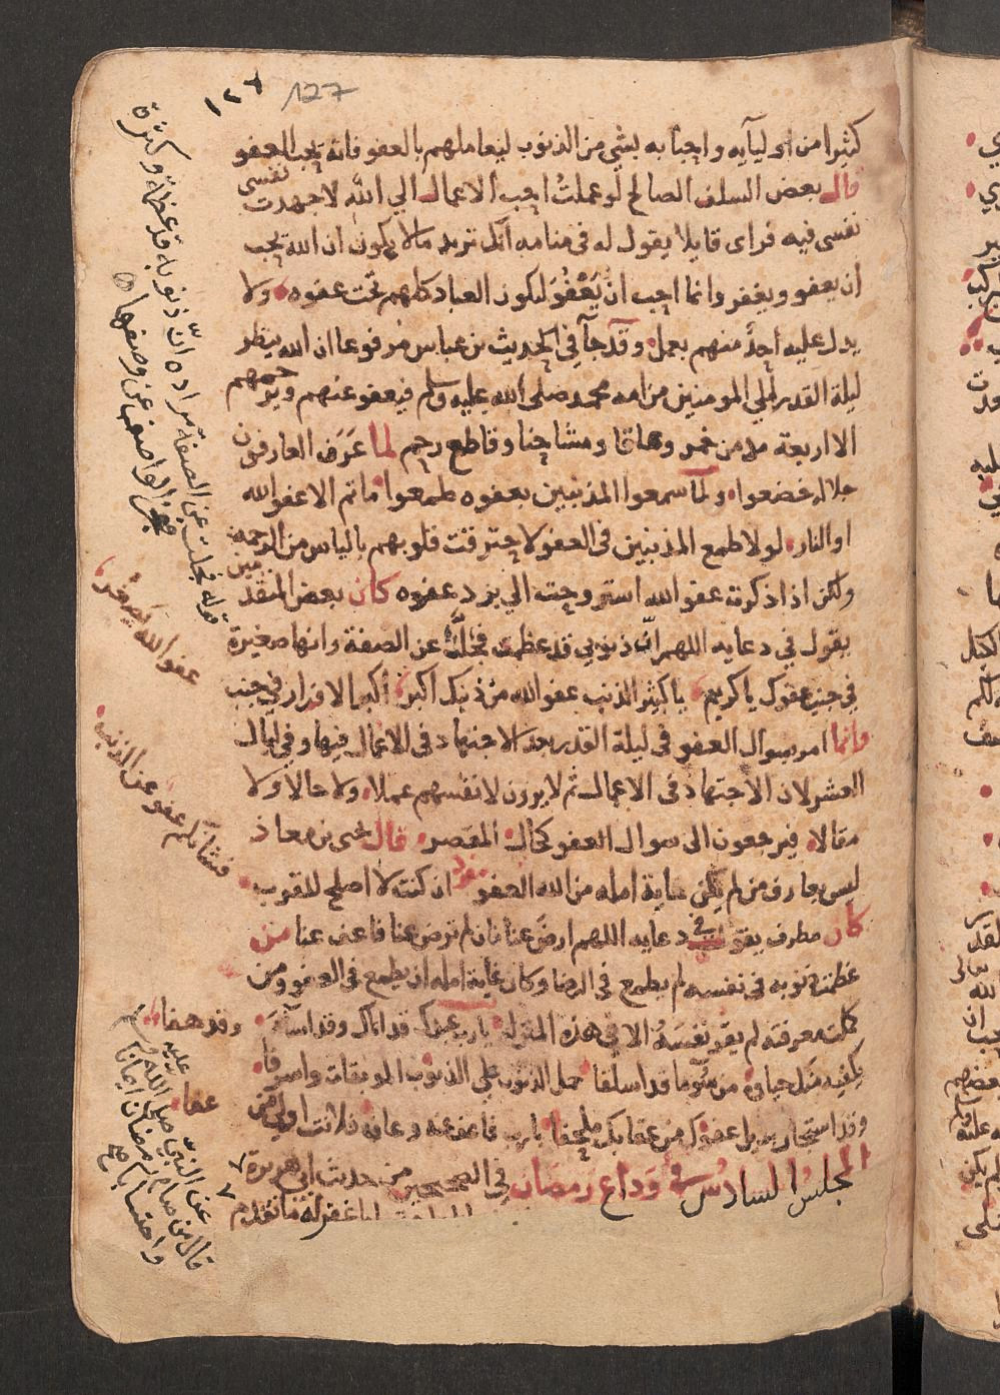 ١٢٧ 127
كثيرا من اوليايه واحبابه بشي من الذنوب ليعاملهم بالعفو فانه يحب العفو
قال بعض السلف الصالح لو علمت احب الاعمال الي الله لاجهدت نفسي
نفسي فيه فراى قايلا يقول له في منامه انك تريد مالا يكون ان الله يحب
ان يعفو ويغفر وانما احب ان يعفو ليكون العباد كلهم تحت عفوه ولا
يدل عليه احد منهم بعمل وقد جآ في الحديث بن عباس مرفوعا ان الله ينظر
ليلة القدر الي المومنين من امة محمد صلى الله عليه وسلم فيعفو عنهم ويرحمهم
الا اربعة مدمن خمر وعاقا ومشاحنا وقاطع رحم لما عرف العارفون
جلاله خضعوا ولما سمعوا المذنبين بعفوه طمعوا ماتم الا عفو الله
او النار لولا طمع المذنبين في العفو لاحترقت قلوبهم بالياس من الرحمة
ولكن اذا ذكرت عفو الله استروحت الي برد عفوه كان بعض المتقدمين
يقول في دعايه اللهم ان ذنوبي قد عظمت فجلت عن الصفة وانها صغيرة
في جنب عفوك يا كريم يا كثير الذنب عفو الله من ذنبك اكبر اكبر الاوزار في جنب
عفو الله يصغر
وانما امر بسوال العفو في ليلة القدر بعد الاجتهاد في الاعمال فيها وفي ليال
العشر لان الاجتهاد في الاعمال ثم لا يرون لانفسهم عملا ولا حالا ولا
مقالا فيرجعون الى سوال العفو كحال المقصر قال يحيى بن معاذ
ليس بعارف من لم يكن غاية امله من الله العفو ان كنت لا اصلح للقرب
فشانكم عفو عن الذنب
كان مطرف يقول في دعايه اللهم ارض عنا فان لم ترض عنا فاعف عنا من
عظمت ذنوبه في نفسه لم يطمع في الرضا وكان غاية امله ان يطمع في العفو ومن
كملت معرفته لم ير نفسه الا في هذه المنزلة يا رب عبدك قد اتاك وقد اسآ وقد هفا
يكفيه منك حياوه من سوء ما قد اسلفا حمل الذنوب علي الذنوب الموبقات واسرفا
وقد استجار بذيل عفوك من عقابك ملحفا يا رب فاعف عنه وعافه فلانت اولي من عفا
المجلس السادس في وداع رمضان في الصحيحين من حديث ابي هريرة
عن النبي صلى الله عليه وسلم
قال من صام رمضان ايمانا
واحتسابا
غفر له ما تقدم
قوله فجلت عن الصفة مراده ان ذنوبه قد عظمت وكثرة
عجز الواصف عن وصفها